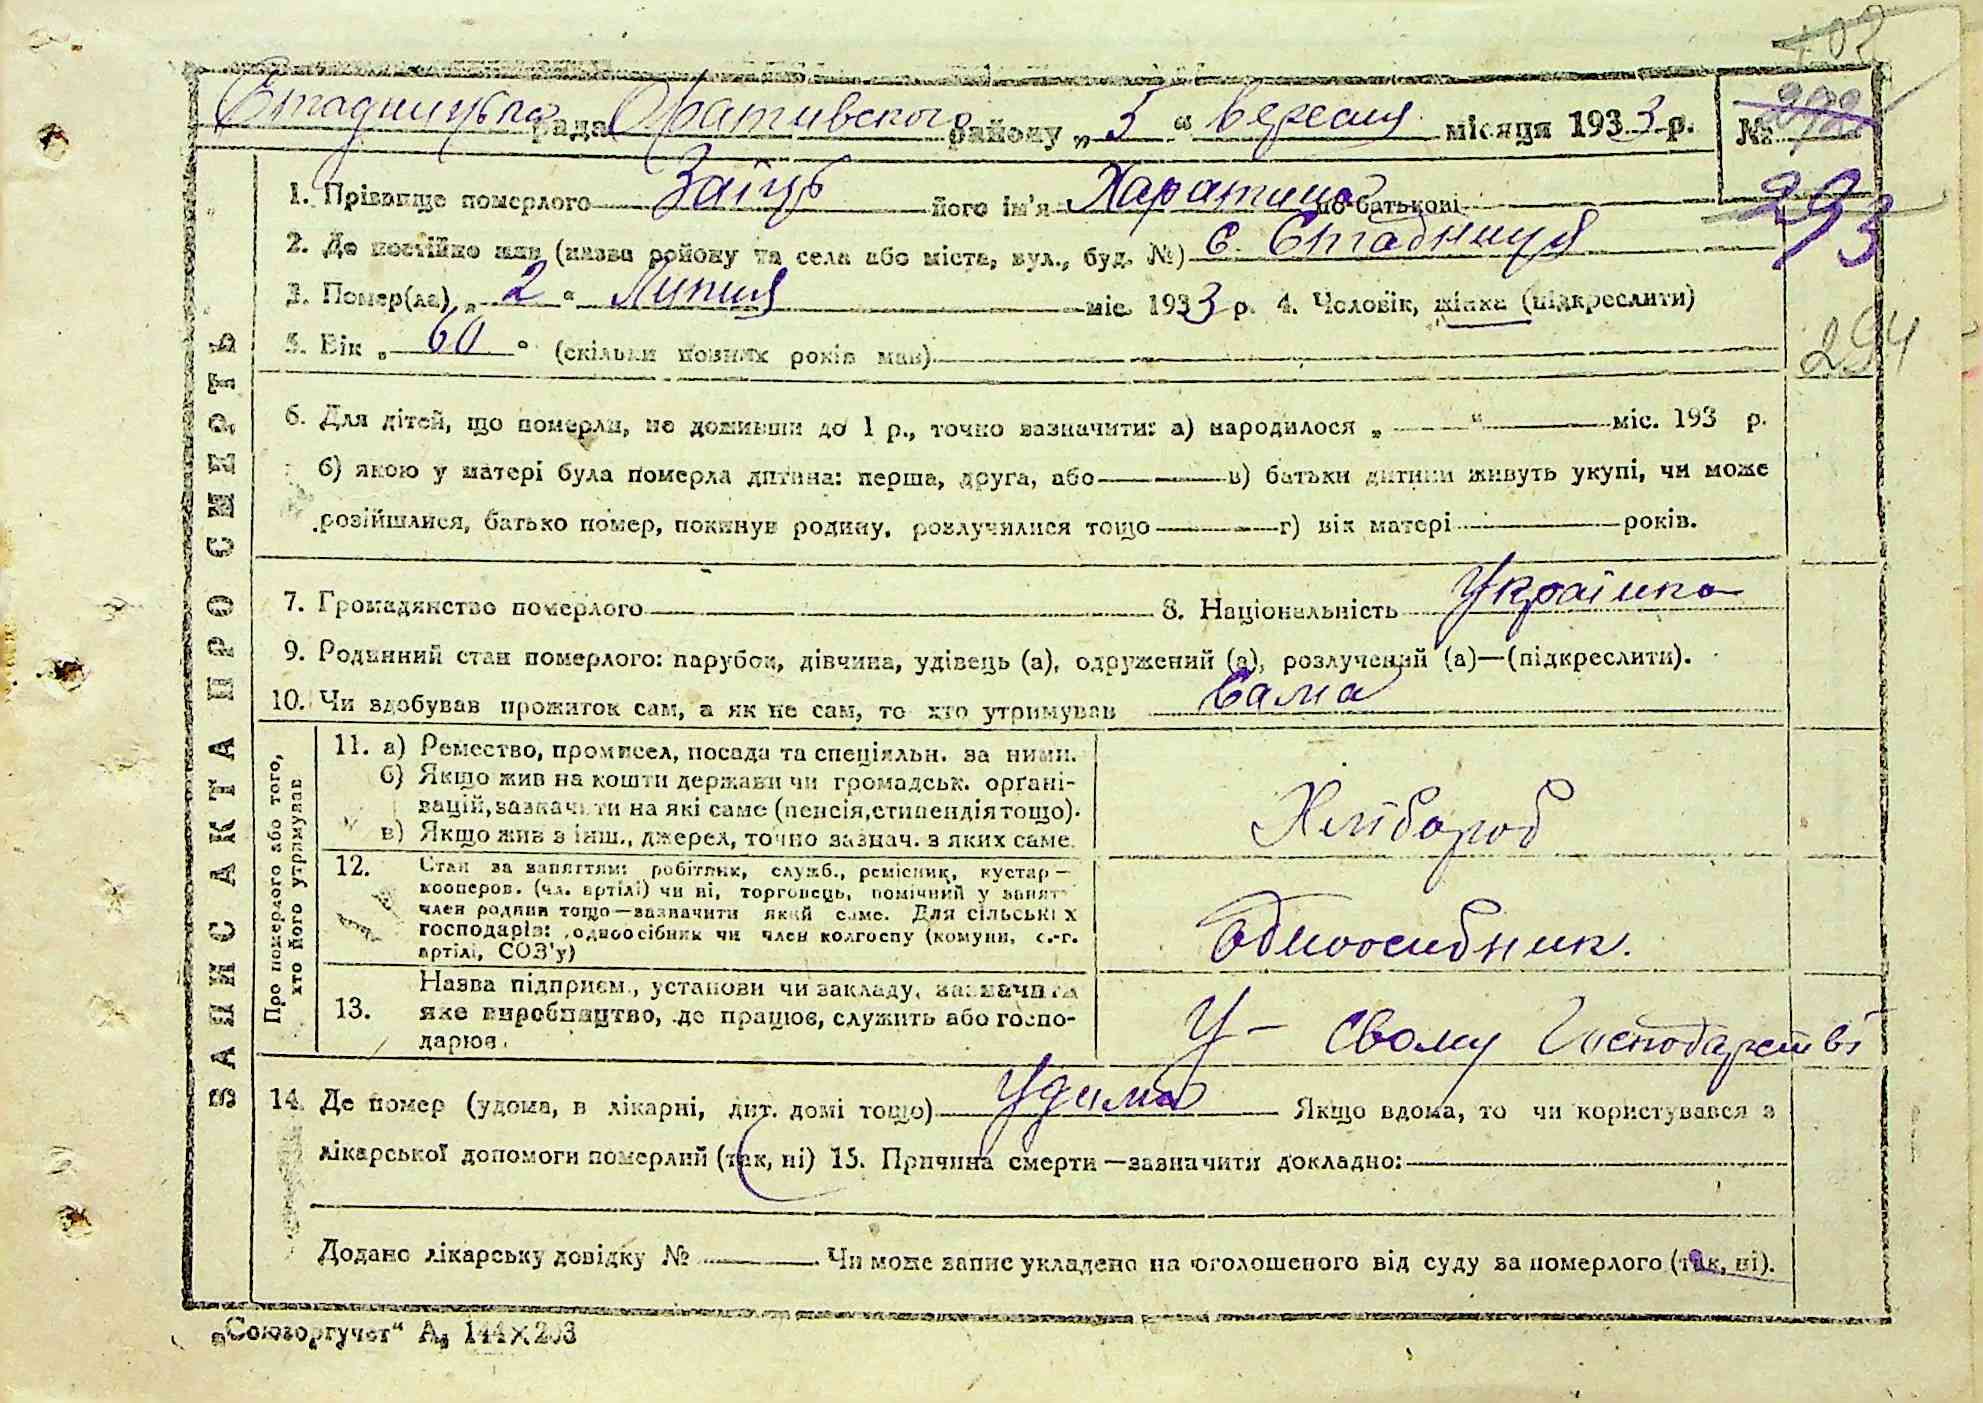 102
Стадницька рада Оративского району „ 3 “ Вересня місяця 1933 р. № 292
293
1. Прізвище померлого Заїць його ім'я Харатина по-батькові
2. Де постійно жив (назва ройону та села або міста, вул., буд. №) С. Стадниця
3. Помер(ла) „ 2 “ Липня міс. 1933 р. 4. Чоловік, жінка (підкреслити)
294
5. Вік „ 60 “ (скільки повних років мав)
6. Для дітей, що померли, не доживши до 1 р., точно зазначити: а) народилося „ “ міс. 193 р.
б) якою у матері була померла дитина: перша, друга, або в) батьки дитини живуть укупі, чи може
розійшлися, батько помер, покинув родину, розлучилися тощо г) вік матері років.
7. Громадянство померлого 8. Національність Українка
9. Родинний стан померлого: парубок, дівчина, удівець (а), одружений (а), розлучений (а)—(підкреслити).
10. Чи здобував прожиток сам, а як не сам, то хто утримував Сама
ЗАПИС АКТА ПРО СМИРТЬ
Про померлого або того,
хто його утримував
11. а) Ремество, промисел, посада та спеціяльн. за ними.
б) Якщо жив на кошти держави чи громадськ. орґані-
зацій, зазначити на які саме (пенсія, стипендія тощо).
в) Якщо жив з інш., джерел, точно зазнач. з яких саме.
Хлібороб
12. Стан за заняттям: робітник, служб., ремісник, кустар—
кооперов. (чл. артілі) чи ні, торговець, помічний у занят
член родини тощо—зазначити який саме. Для сільськіх
господарів: одноосібник чи член колгоспу (комуни, с.-г.
артілі, СОЗ'у)
Одноосибник.
13. Назва підприєм., установи чи закладу, зазначити
яке виробництво, де працює, служить або госпо-
дарює.
У - Свому Господарстві
14. Де помер (удома, в лікарні, дит. домі тощо) Удима Якщо вдома, то чи користувався з
лікарської допомоги померлий (так, ні) 15. Причина смерти—зазначити докладно:
Додано лікарську довідку № Чи може запис укладено на оголошеного від суду за померлого (так, ні).
„Союзоргучет“ А, 144×203